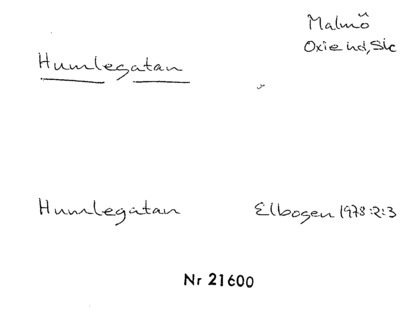 Malmö
Oxie hd, Sk
Humlegatan
Humlegatan Elbogen 1978:2:3
Nr 21600